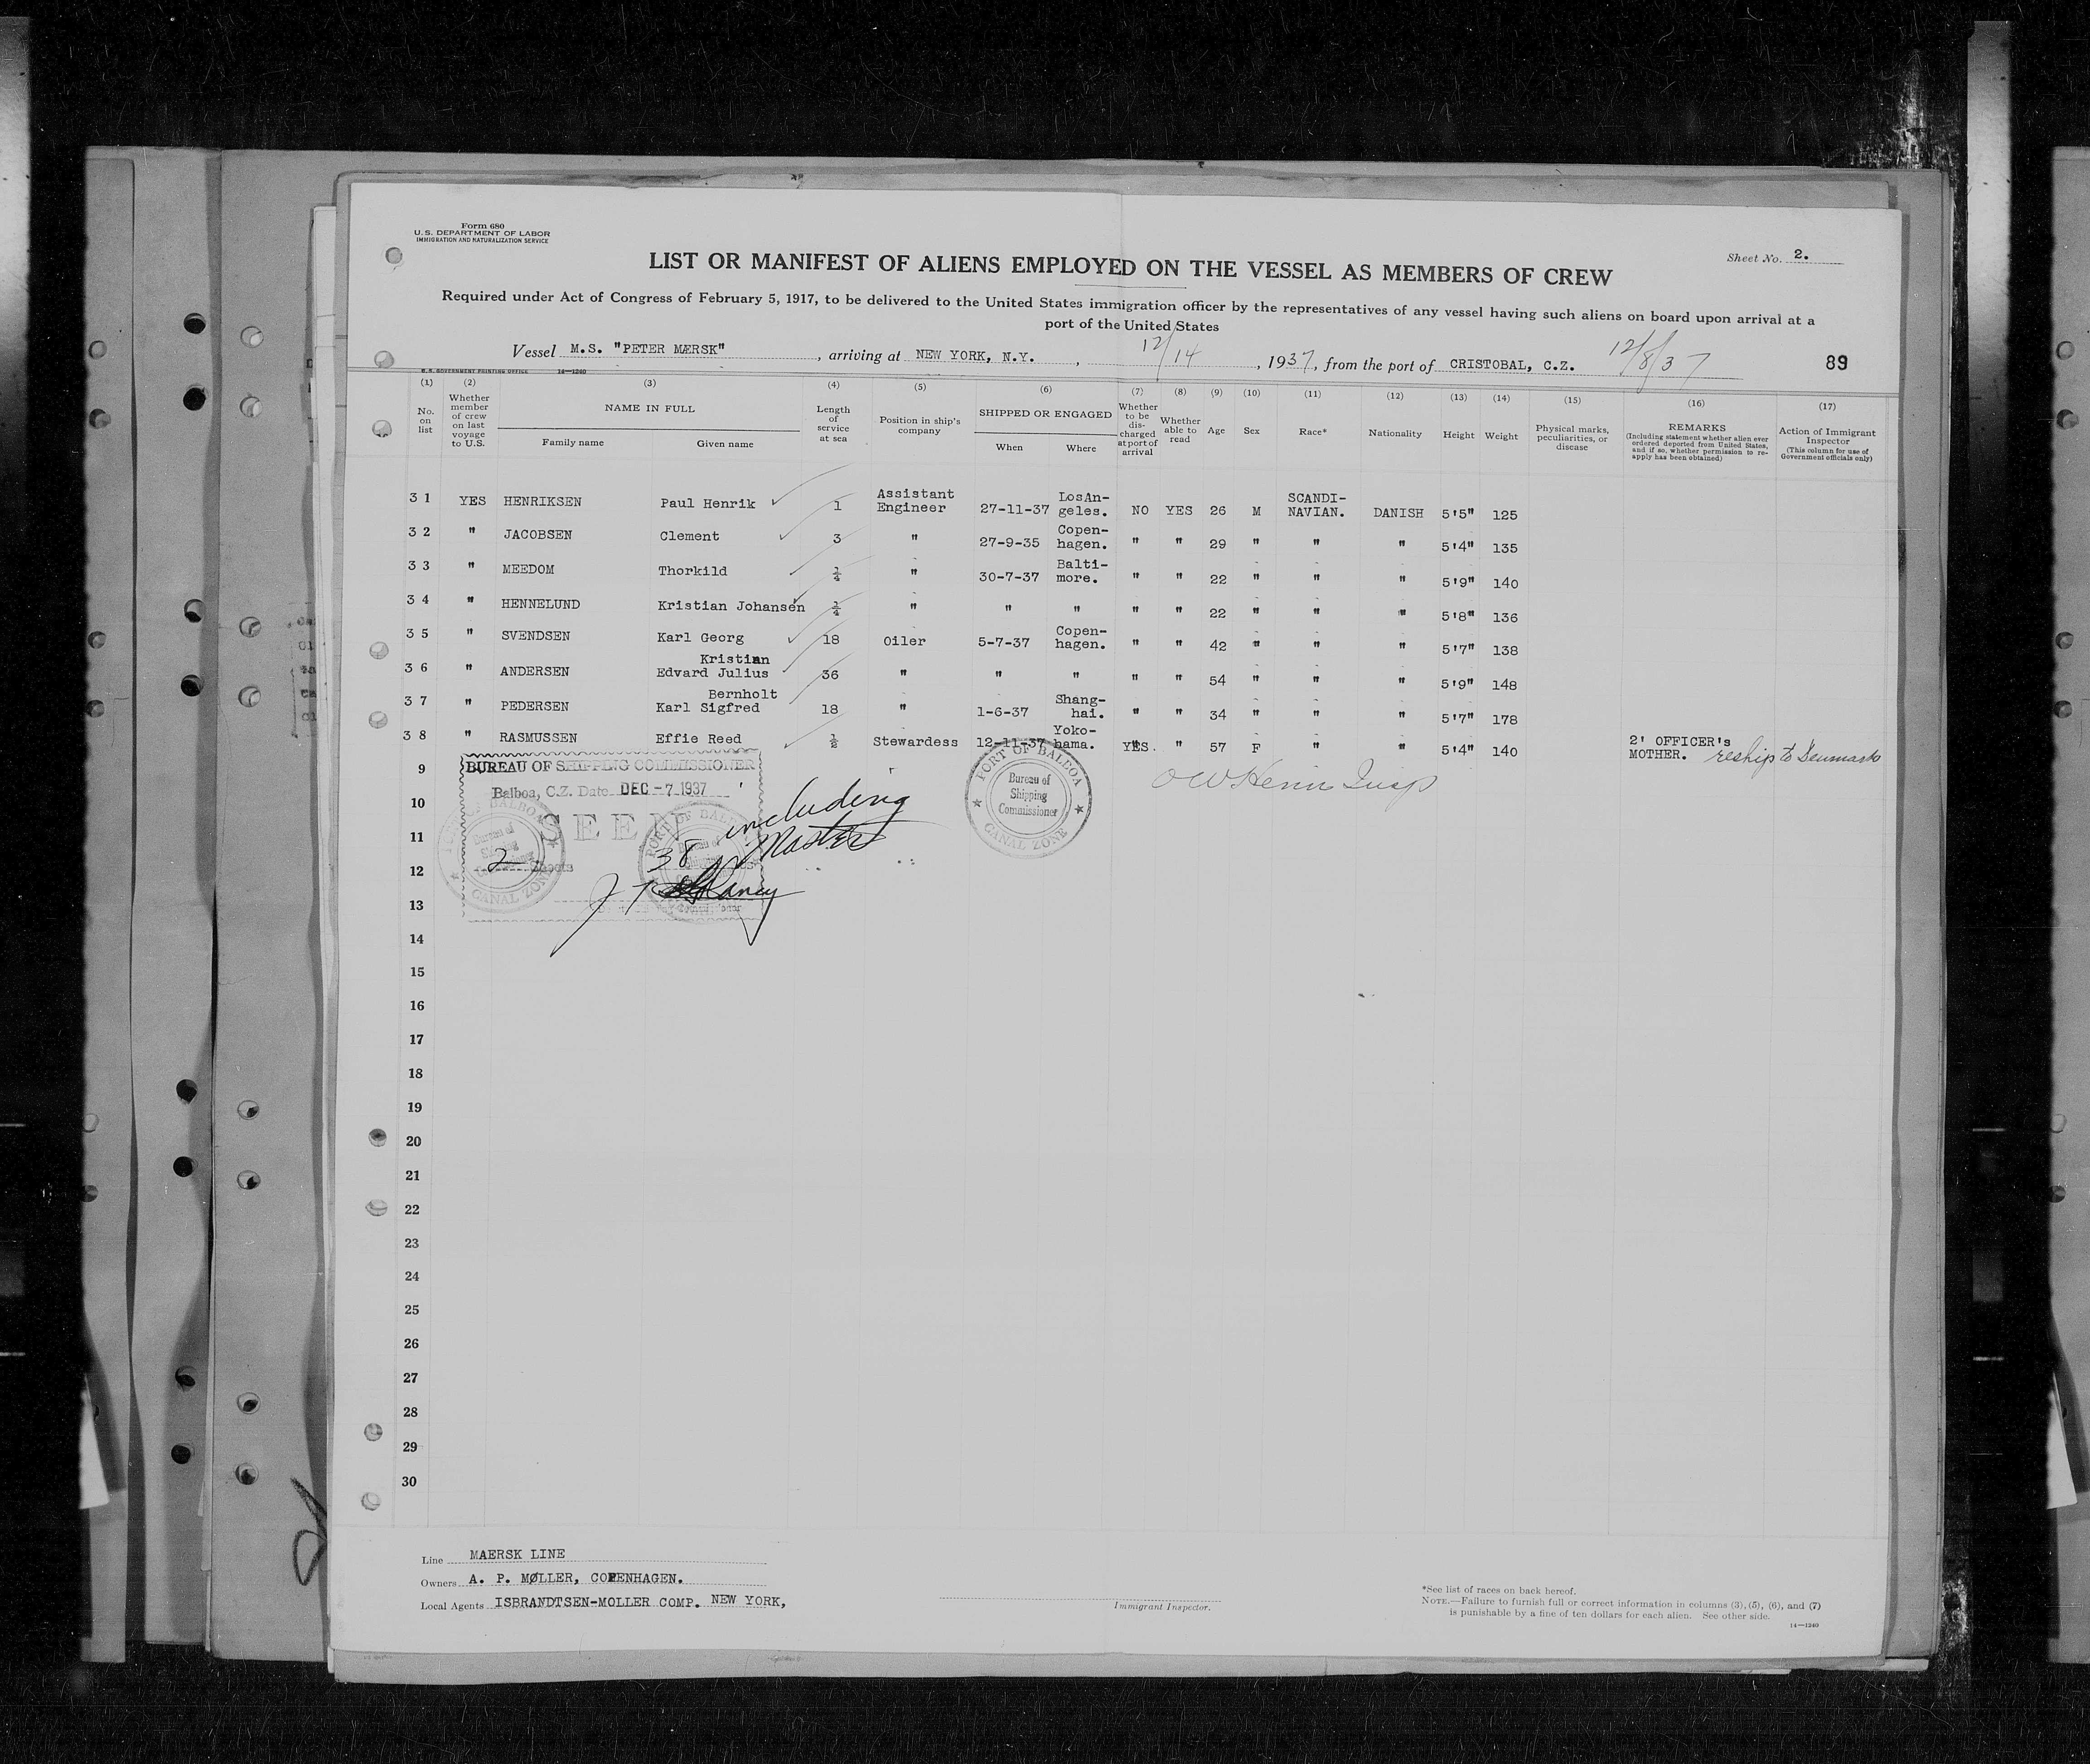 Form 680
U. S. DEPARTMENT OF LABOR
IMMIGRATION AND NATURALIZATION SERVICE
Sheet No. 2.
LIST OR MANIFEST OF ALIENS EMPLOYED ON THE VESSEL AS MEMBERS OF CREW
Required under Act of Congress of February 5, 1917, to be delivered to the United States immigration officer by the representatives of any vessel having such aliens on board upon arrival at a
port of the United States
Vessel M.S. "PETER MÆRSK", arriving at NEW YORK, N.Y., 12/14, 1937, from the port of CRISTOBAL, C.Z. 12/8/37
89
U.S. GOVERNMENT PRINTING OFFICE 14—1240
(1) No. on list
(2) Whether member of crew on last voyage to U.S.
(3) NAME IN FULL
Family name Given name
(4) Length of service at sea
(5) Position in ship's company
(6) SHIPPED OR ENGAGED
When Where
(7) Whether to be dis-charged at port of arrival
(8) Whether able to read
(9) Age
(10) Sex
(11) Race*
(12) Nationality
(13) Height
(14) Weight
(15) Physical marks, peculiarities, or disease
(16) REMARKS
(Including statement whether alien ever ordered deported from United States, and if so, whether permission to re-apply has been obtained)
(17) Action of Immigrant Inspector
(This column for use of Government officials only)
31 YES HENRIKSEN Paul Henrik 1 Assistant Engineer 27-11-37 LosAn-geles. NO YES 26 M SCANDI-NAVIAN. DANISH 5'5" 125
32 " JACOBSEN Clement 3 " 27-9-35 Copen-hagen. " " 29 " " " 5'4" 135
33 " MEEDOM Thorkild ¼ " 30-7-37 Balti-more. " " 22 " " " 5'9" 140
34 " HENNELUND Kristian Johansen ¼ " " " " " 22 " " " 5'8" 136
35 " SVENDSEN Karl Georg 18 Oiler 5-7-37 Copen-hagen. " " 42 " " " 5'7" 138
36 " ANDERSEN Kristian Edvard Julius 36 " " " " " 54 " " " 5'9" 148
37 " PEDERSEN Bernholt Karl Sigfred 18 " 1-6-37 Shang-hai. " " 34 " " " 5'7" 178
38 " RASMUSSEN Effie Reed ½ Stewardess 12-11-37 Yoko-hama. YES. " 57 F " " 5'4" 140 2' OFFICER's MOTHER. reship to Denmark
BUREAU OF SHIPPING COMMISSIONER
Balboa, C.Z. Date DEC -7 1937
SEEN
2
38 including Master
PORT OF BALBOA
Bureau of
Shipping
Commissioner
CANAL ZONE
PORT OF BALBOA
Bureau of
CANAL ZONE
PORT OF BALBOA
9
10
11
12
13
14
15
16
17
18
19
20
21
22
23
24
25
26
27
28
29
30
Line MAERSK LINE
Owners A. P. MØLLER, COPENHAGEN.
Local Agents ISBRANDTSEN-MOLLER COMP. NEW YORK,
Immigrant Inspector.
*See list of races on back hereof.
NOTE.—Failure to furnish full or correct information in columns (3), (5), (6), and (7)
is punishable by a fine of ten dollars for each alien. See other side.
14—1240